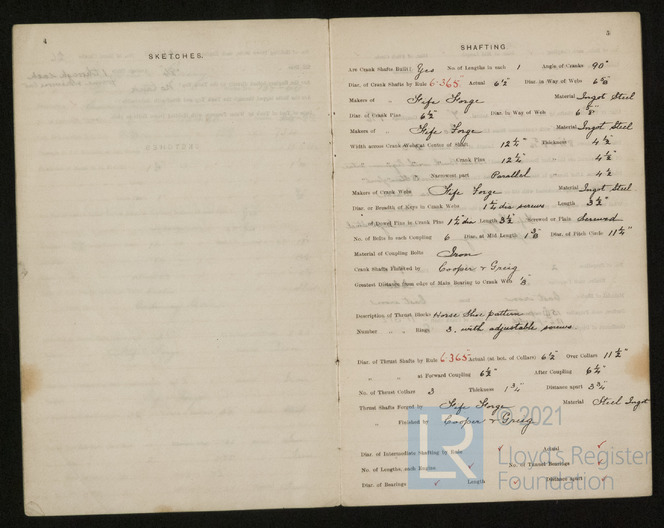 4
SKETCHES.
5
SHAFTING.
Are Crank Shafts Built? Yes No. of Lengths in each 1 Angle of Cranks 90°
Diar. of Crank Shafts by Rule 6.365" Actual 6½" Diar. in Way of Webs
Makers of „ Fife Forge Material Ingot Steel
Diar. of Crank Pins 6½" Diar. in Way of Web
Makers of „ Fife Forge Material Ingot Steel
Width across Crank Webs at Centre of Shaft 12¼" Thickness 4½"
„ „ Crank Pins 12¼" „ 4½"
„ „ Narrowest part Parallel „ 4½
Makers of Crank Webs Fife Forge Material Ingot Steel
Diar. or Breadth of Keys in Crank Webs 1¼ dia screws Length 3½"
„ of Dowel Pins in Crank Pins 1¼" dia Length 3½" Screwed or Plain Screwed
No. of Bolts in each Coupling 6 Diar. at Mid Length Diar. of Pitch Circle 11¼"
Material of Coupling Bolts Iron
Crank Shafts Finished by Cooper & Greig
Greatest Distance from edge of Main Bearing to Crank Web
Description of Thrust Blocks Horse Shoe pattern
Number „ „ Rings 3. with adjustable screws.
Diar. of Thrust Shafts by Rule 6.365" Actual (at bot. of Collars) 6½" Over Collars 11½"
„ „ at Forward Coupling 6½" After Coupling 6¼"
No. of Thrust Collars 3 Thickness 1¾" Distance apart 3¾"
Thrust Shafts Forged by Fife Forge Material Steel Ingot
„ Finished by Cooper & Greig
Diar. of Intermediate Shafting by Rule ✓ Actual ✓
No. of Lengths, each Engine ✓ No. of Tunnel Bearings ✓
Diar. of Bearings ✓ Length ✓ Distance apart ✓
© 2021
LR
Lloyd's Register
Foundation